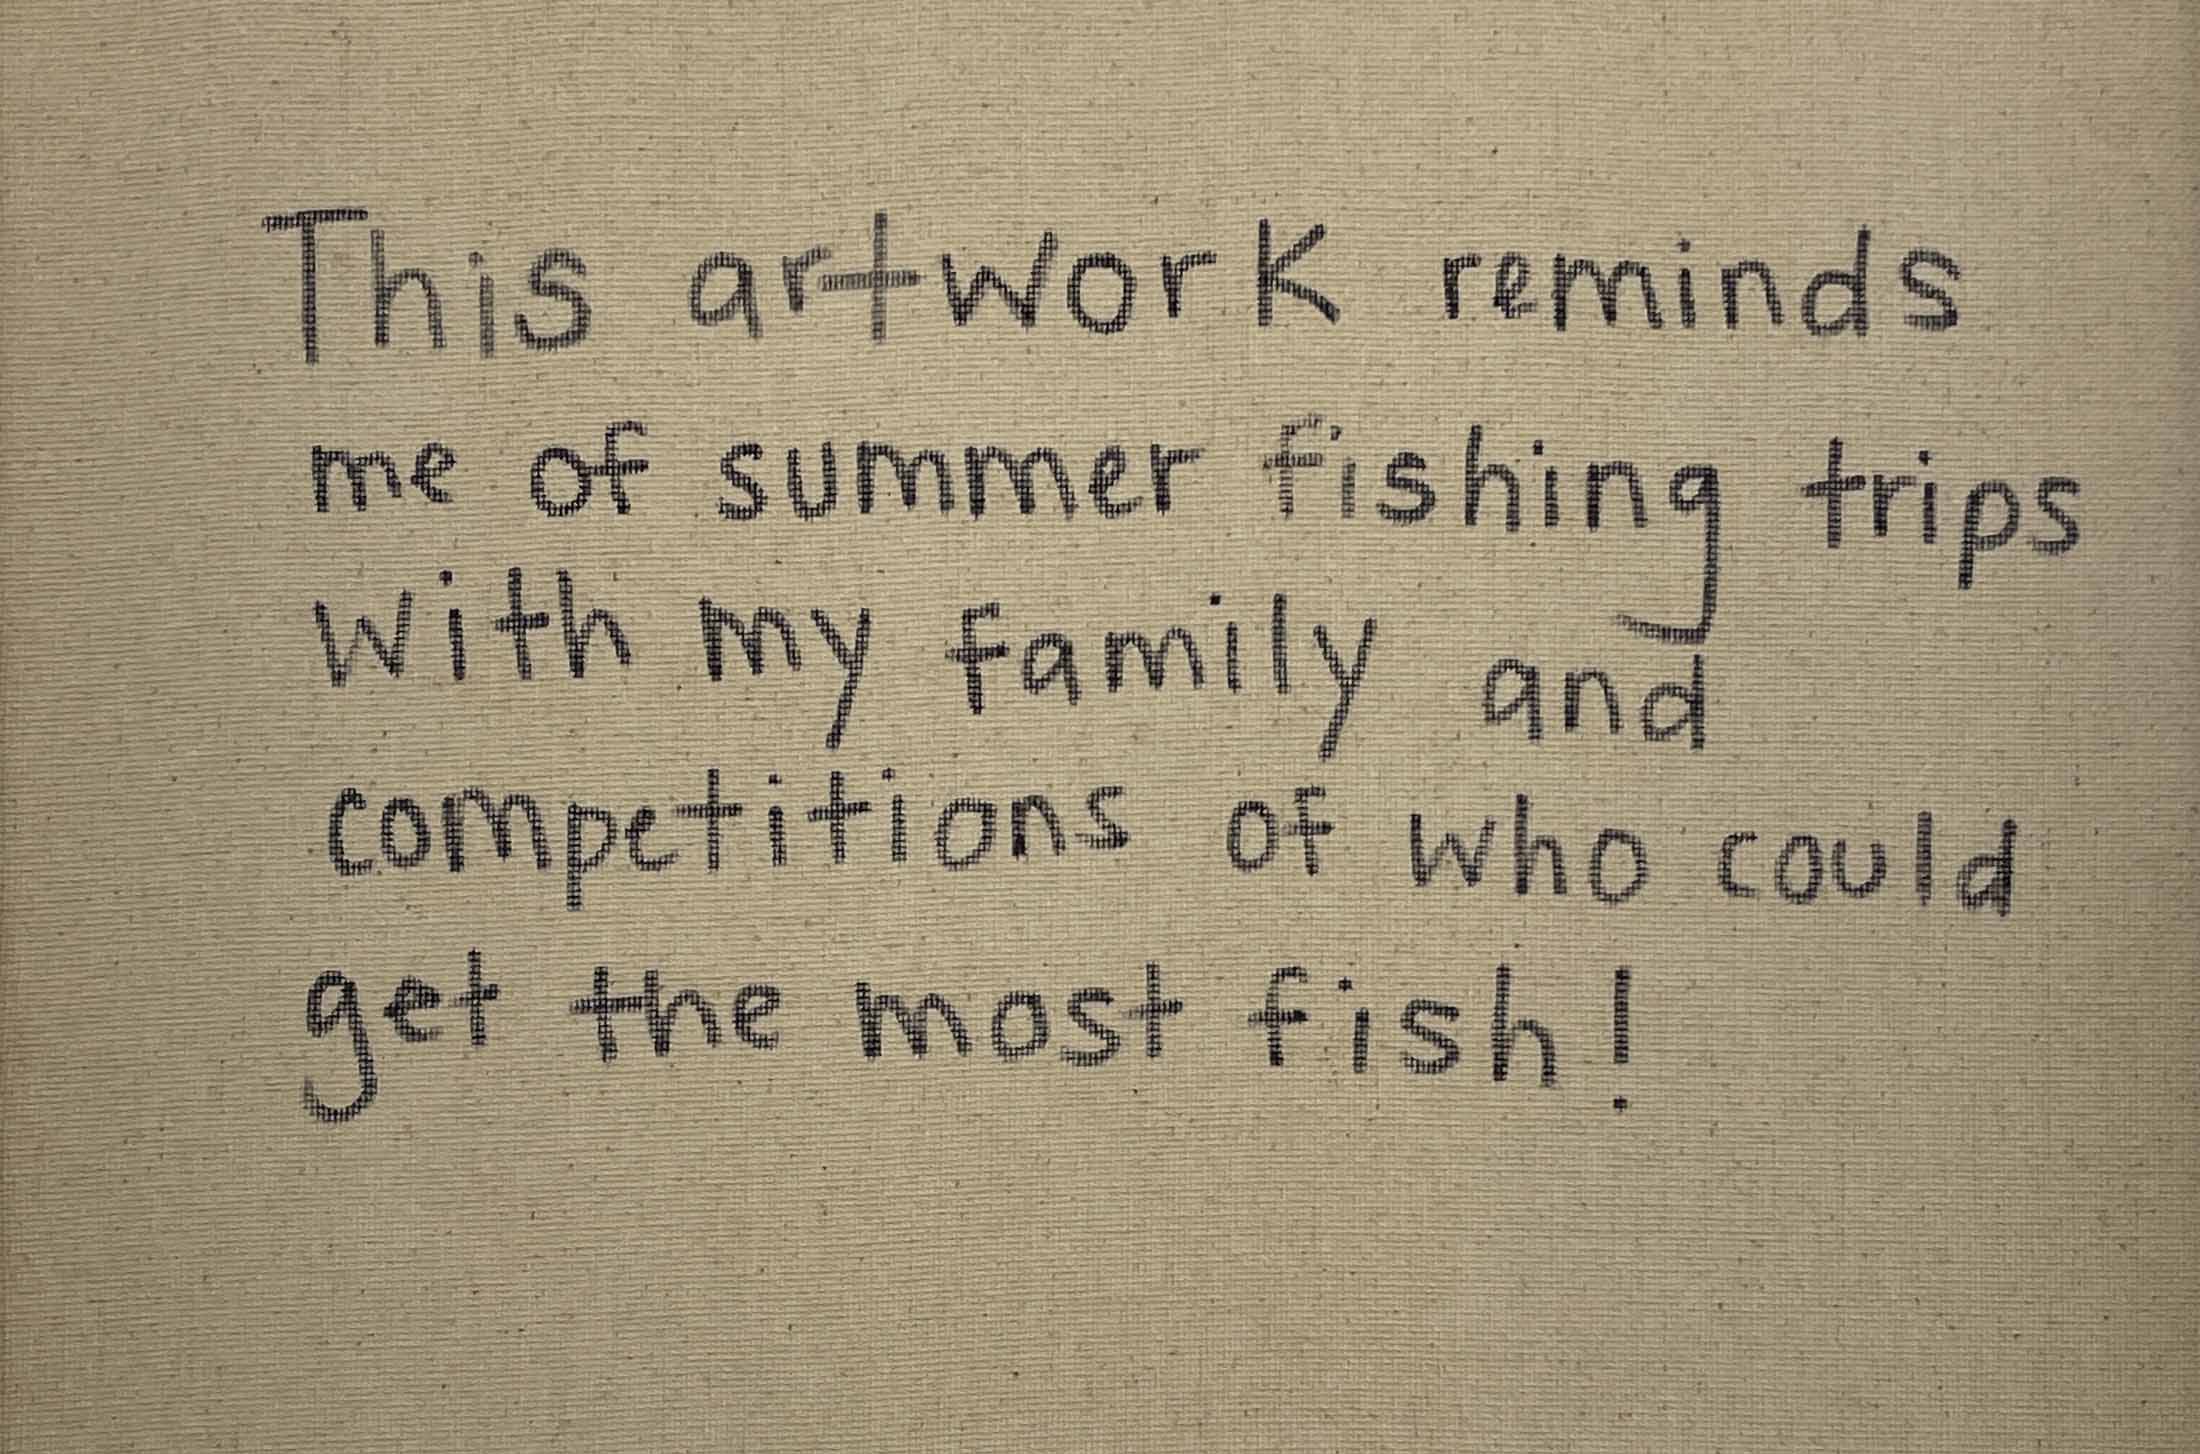 This artwork reminds
me of summer fishing trips
with my family and
competitions of who could
get the most fish!